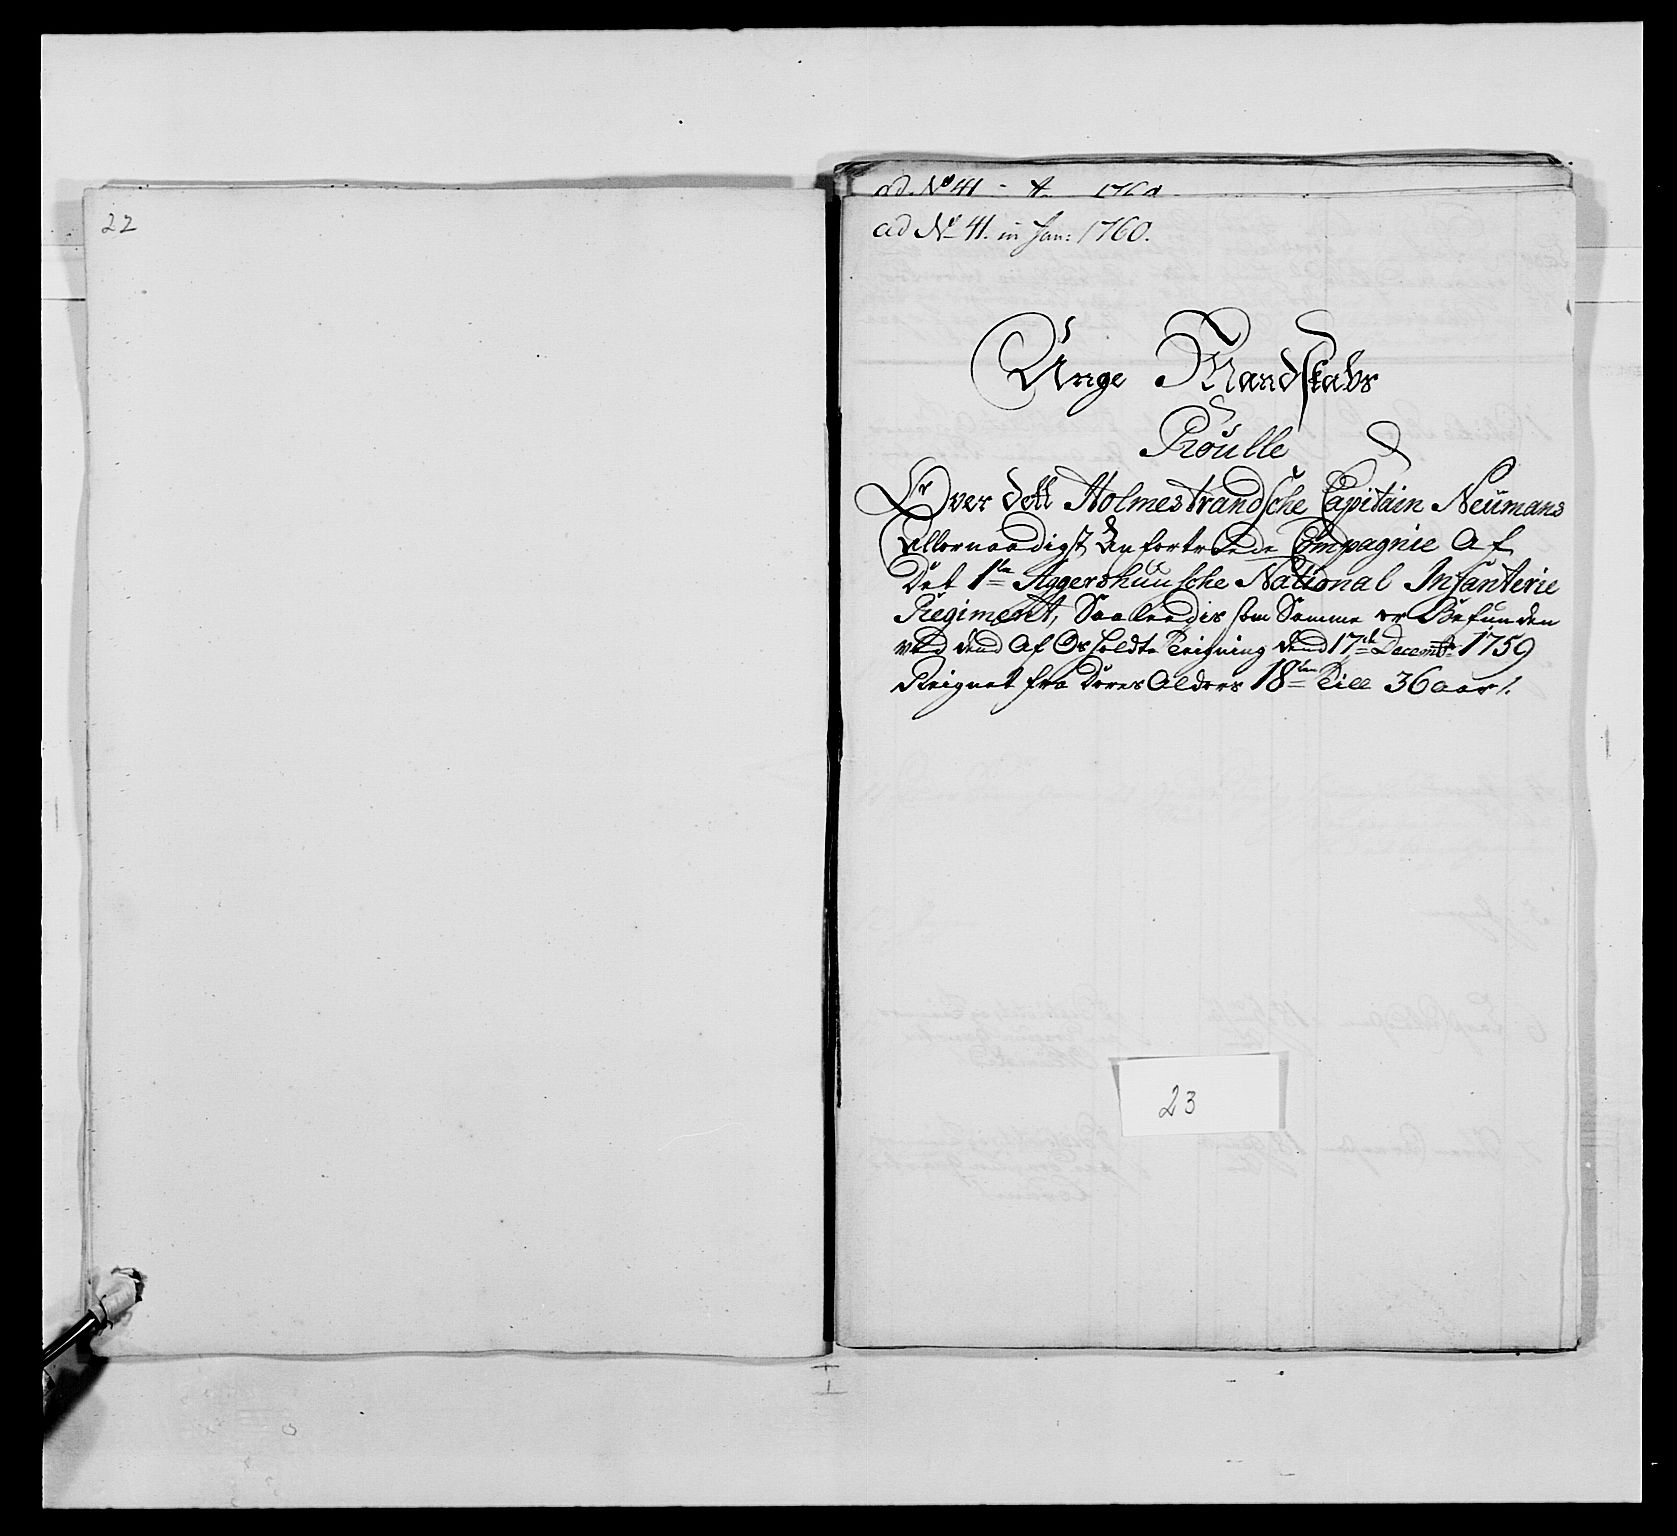 22
ad No 41 1760
ad No 41. in Jan: 1760.
Unge Mandskabs
Roulle
Over dett Holmestrandsche Capitain Neumans
Allernaadigst Anfortroede Compagnie af
Det 1te Aggershuusche National Infanterie
Regiment, Saaleedis som Samme er Befunden
ved dend af Holdte Teigning dend 17de Decembr 1759
Reignet fra Deres Alders 18ten Till 36 aar /.
23